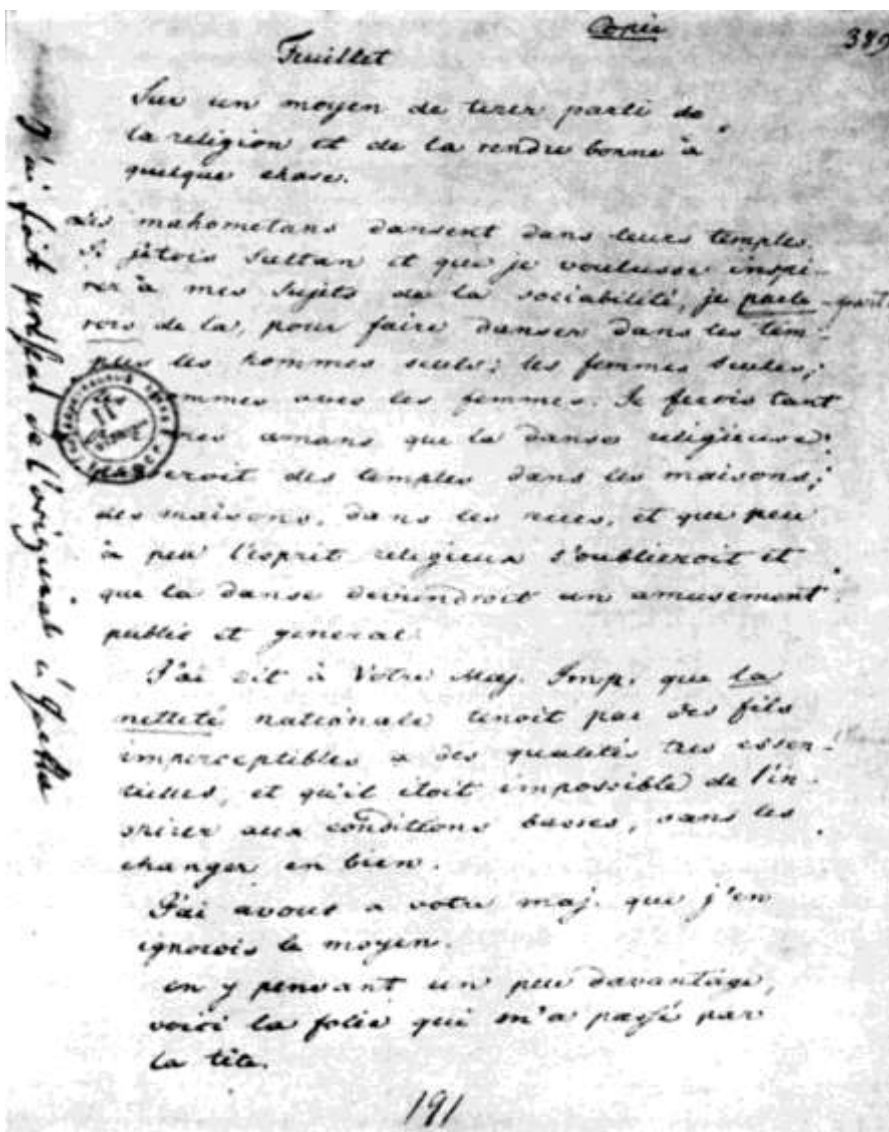 Copie
389
Feuillet
Sur un moyen de tirer parti de
la religion et de la rendre bonne à
quelque chose.
Les mahometans dansent dans leurs temples.
Si j'étois Sultan et que je voulusse inspi-
rer à mes Sujets de la sociabilité, je parti-
rois de là, pour faire danser dans les tem-
ples les hommes seuls; les femmes seules;
hommes avec les femmes. Je ferois tant
mes amans que la danse religieuse
passeroit des temples dans les maisons;
des maisons, dans les rues, et que peu
à peu l'esprit religieux s'oublieroit et
que la danse deviendroit un amusement
public et general.
J'ai dit à Votre Maj. Imp. que la
netteté nationale tenoit par des fils
imperceptibles a des qualités tres essen-
tielles, et qu'il étoit impossible de l'in-
spirer aux conditions basses, sans les
changer en bien.
J'ai avoué a votre maj. que j'en
ignorois le moyen.
en y pensant un peu davantage,
voici la folie qui m'a passé par
la tête.
191
J'ai fait présent de l'original à